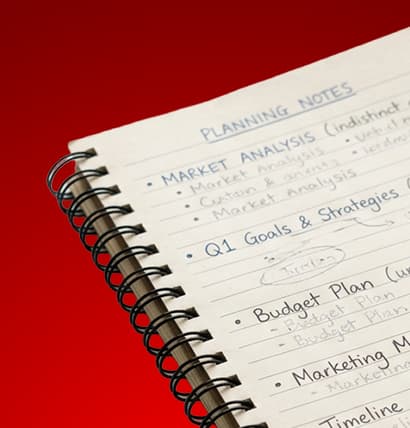 PLANNING NOTES
• MARKET ANALYSIS (indistinct
• Market Analysis
• Market Analysis
• Q1 Goals & Strategies (
• Budget Plan (u
- Budget Plan
- Budget Plan
• Marketing M
- Marketing
Timeline